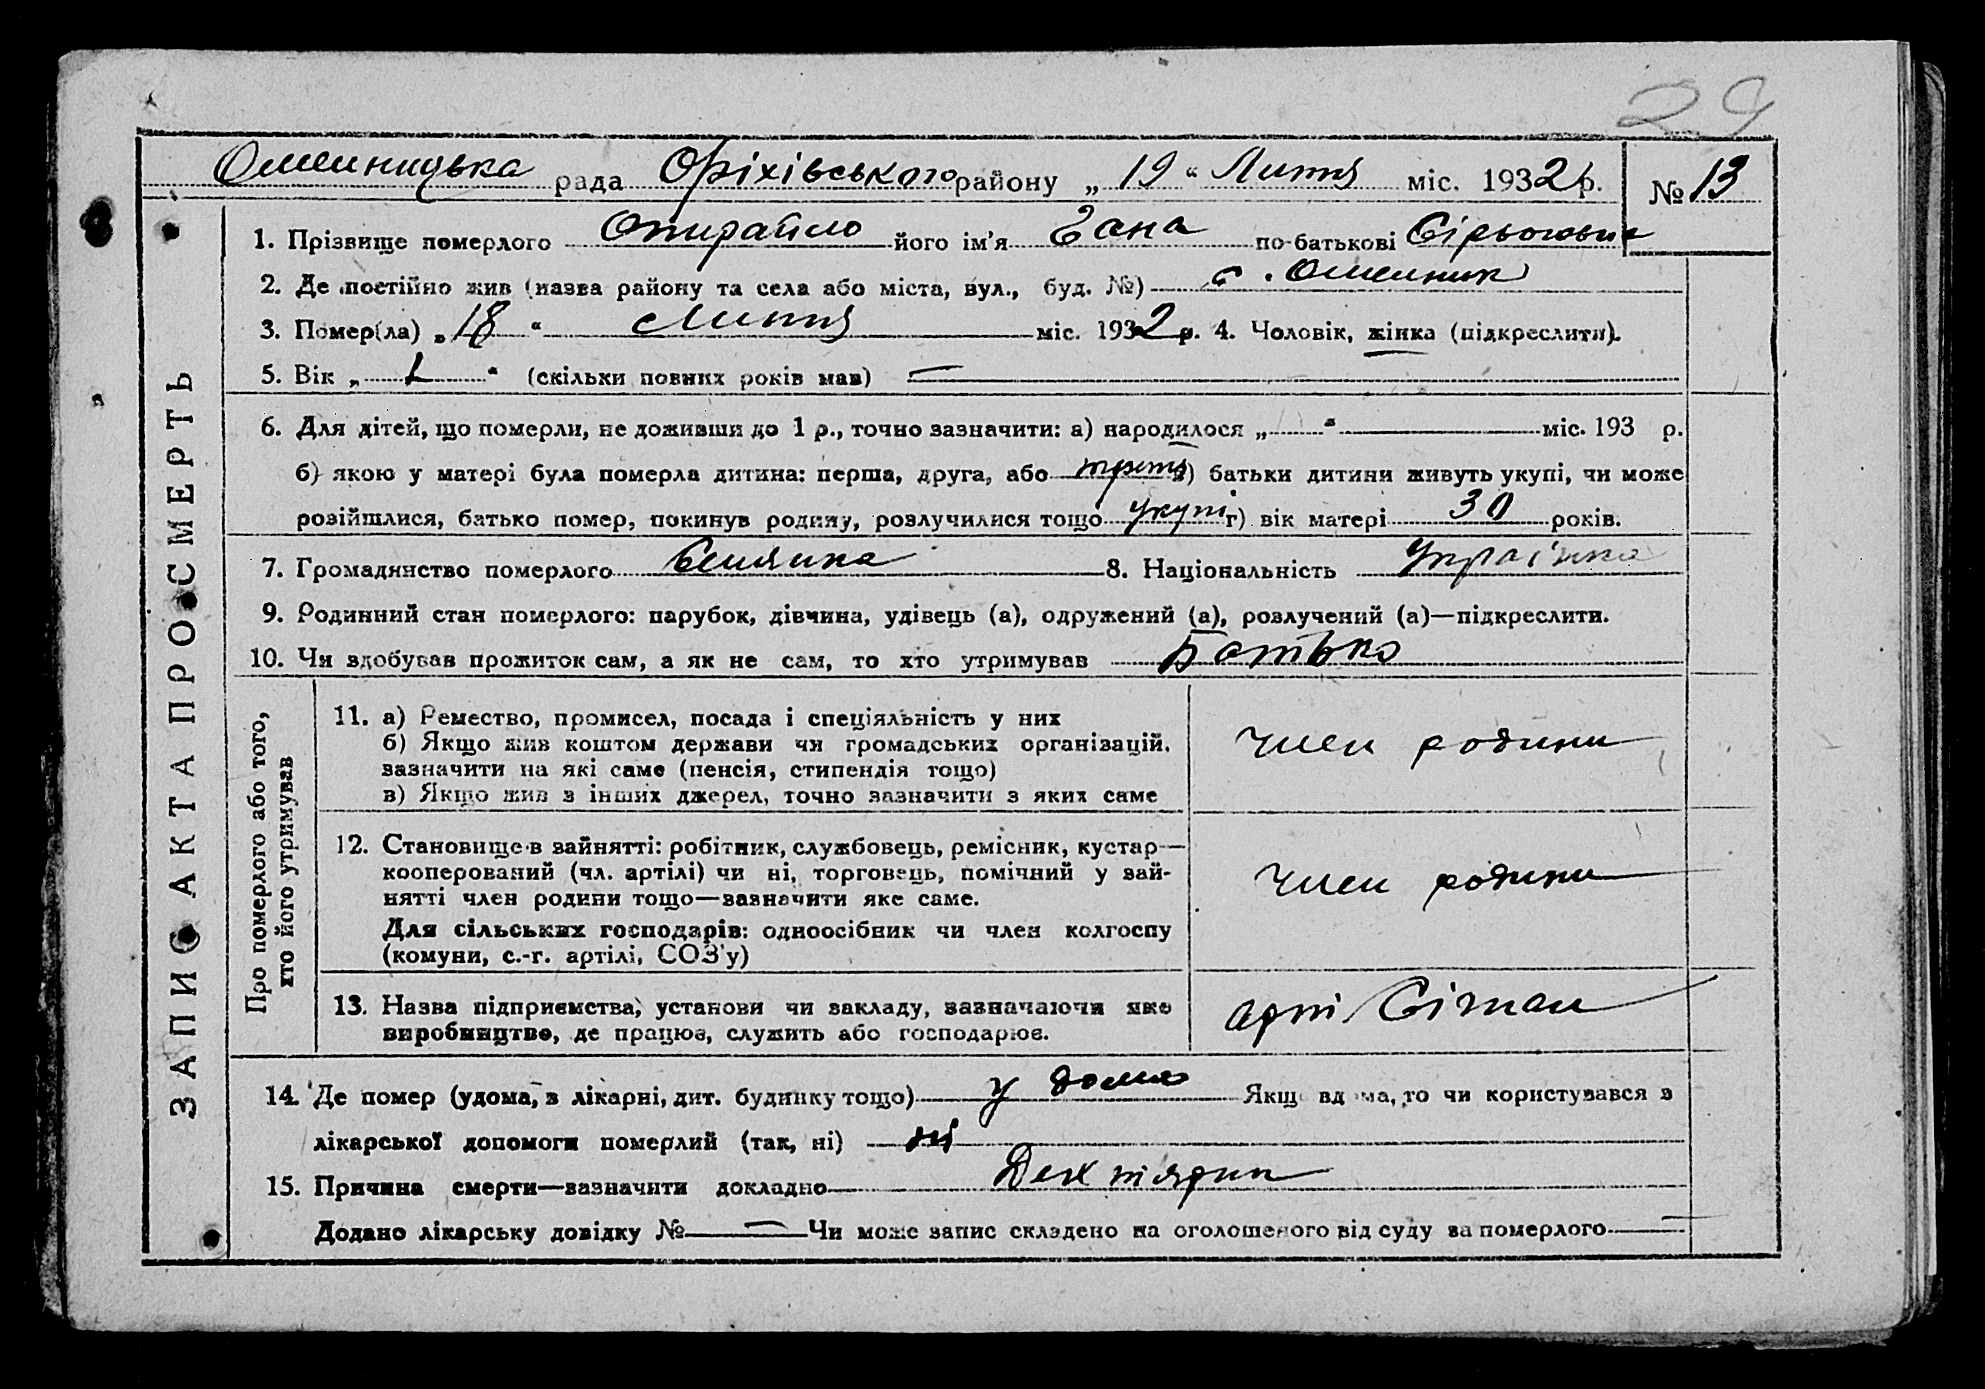 29
Омельницька рада Оріхівського району „ 19 “ Липня міс. 1932 р. № 13
1. Прізвище померлого його ім'я по-батькові
2. Де постійно жив (назва району та села або міста, вул., буд. №) с. Омельник
3. Помер(ла) „ 18 “ Липня міс. 1932 р. 4. Чоловік, жінка (підкреслити).
5. Вік „ 1 “ (скільки повних років мав) —
6. Для дітей, що померли, не доживши до 1 р., точно зазначити: а) народилося „ “ міс. 193 р.
б) якою у матері була померла дитина: перша, друга, або третя в) батьки дитини живуть укупі, чи може
розійшлися, батько помер, покинув родину, розлучилися тощо укупі г) вік матері 30 років.
7. Громадянство померлого 8. Національність Українка
9. Родинний стан померлого: парубок, дівчина, удівець (а), одружений (а), розлучений (а)—підкреслити.
10. Чи здобував прожиток сам, а як не сам, то хто утримував Батько
11. а) Ремество, промисел, посада і спеціяльність у них
б) Якщо жив коштом держави чи громадських організацій, зазначити на які саме (пенсія, стипендія тощо)
в) Якщо жив з інших джерел, точно зазначити з яких саме
член родини
12. Становище в зайнятті: робітник, службовець, ремісник, кустар—
кооперований (чл. артілі) чи ні, торговець, помічний у зай-
нятті член родини тощо—зазначити яке саме.
Для сільських господарів: одноосібник чи член колгоспу
(комуни, с.-г. артілі, СОЗ'у)
член родини
13. Назва підприємства, установи чи закладу, зазначаючи яке
виробництво, де працює, служить або господарює.
14. Де помер (удома, в лікарні, дит. будинку тощо) у дома Якщо вдома, то чи користувався з
лікарської допомоги померлий (так, ні) ні
15. Причина смерти—зазначити докладно
Додано лікарську довідку № — Чи може запис складено на оголошеного від суду за померлого —
ЗАПИС АКТА ПРО СМЕРТЬ
Про померлого або того,
хто його утримував